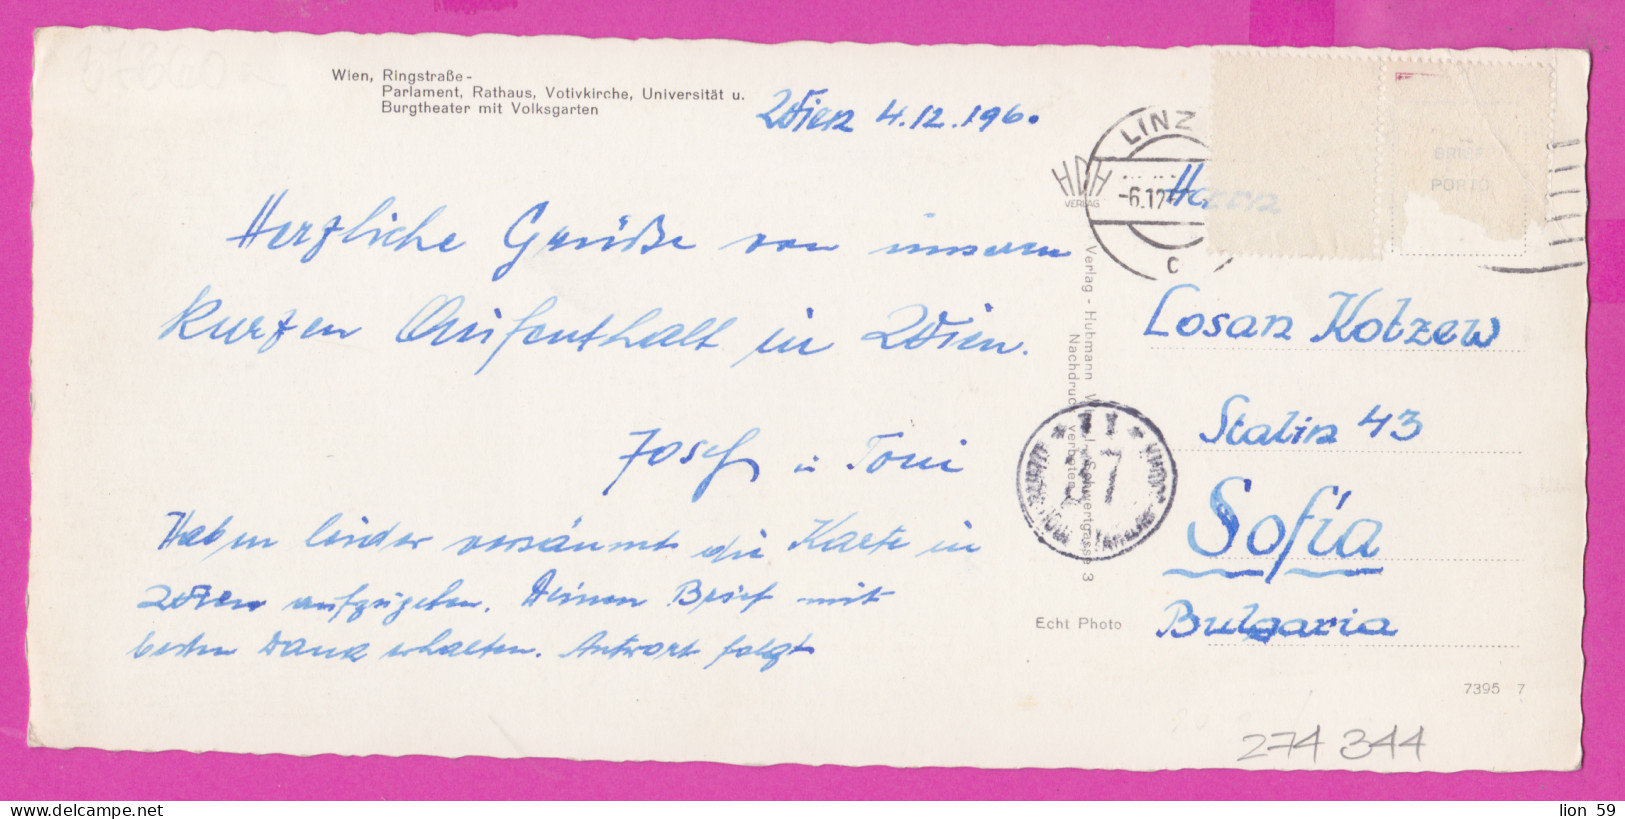 Wien, Ringstraße -
Parlament, Rathaus, Votivkirche, Universität u.
Burgtheater mit Volksgarten
Wien 4.12.1960
Herzliche Grüße von unserem
kurzen Aufenthalt in Wien.
Josef u Toni
Haben leider versäumt die Karte in
Wien aufzugeben. Deinen Brief mit
besten Dank erhalten. Antwort folgt
HDH
VERLAG
Verlag - Huhmann
Schwertgasse 3
Nachdruck verboten
Echt Photo
LINZ
-6.12
C
BRIEF
PORTO
Herrn
Losan Kotzew
Stalin 43
Sofia
Bulgaria
7395 7
274 344
lion 59